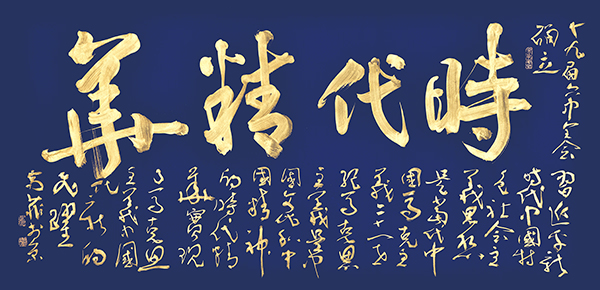 十九届六中全会
确立
時代精華
習近平新
時代中國特
色社会主
義思想
是当代中
國馬克思主
義二十一世
纪马克思
主義是中
华文化和中
國精神
的時代精
華實現
了马克思
主義中國
化新的
飞躍